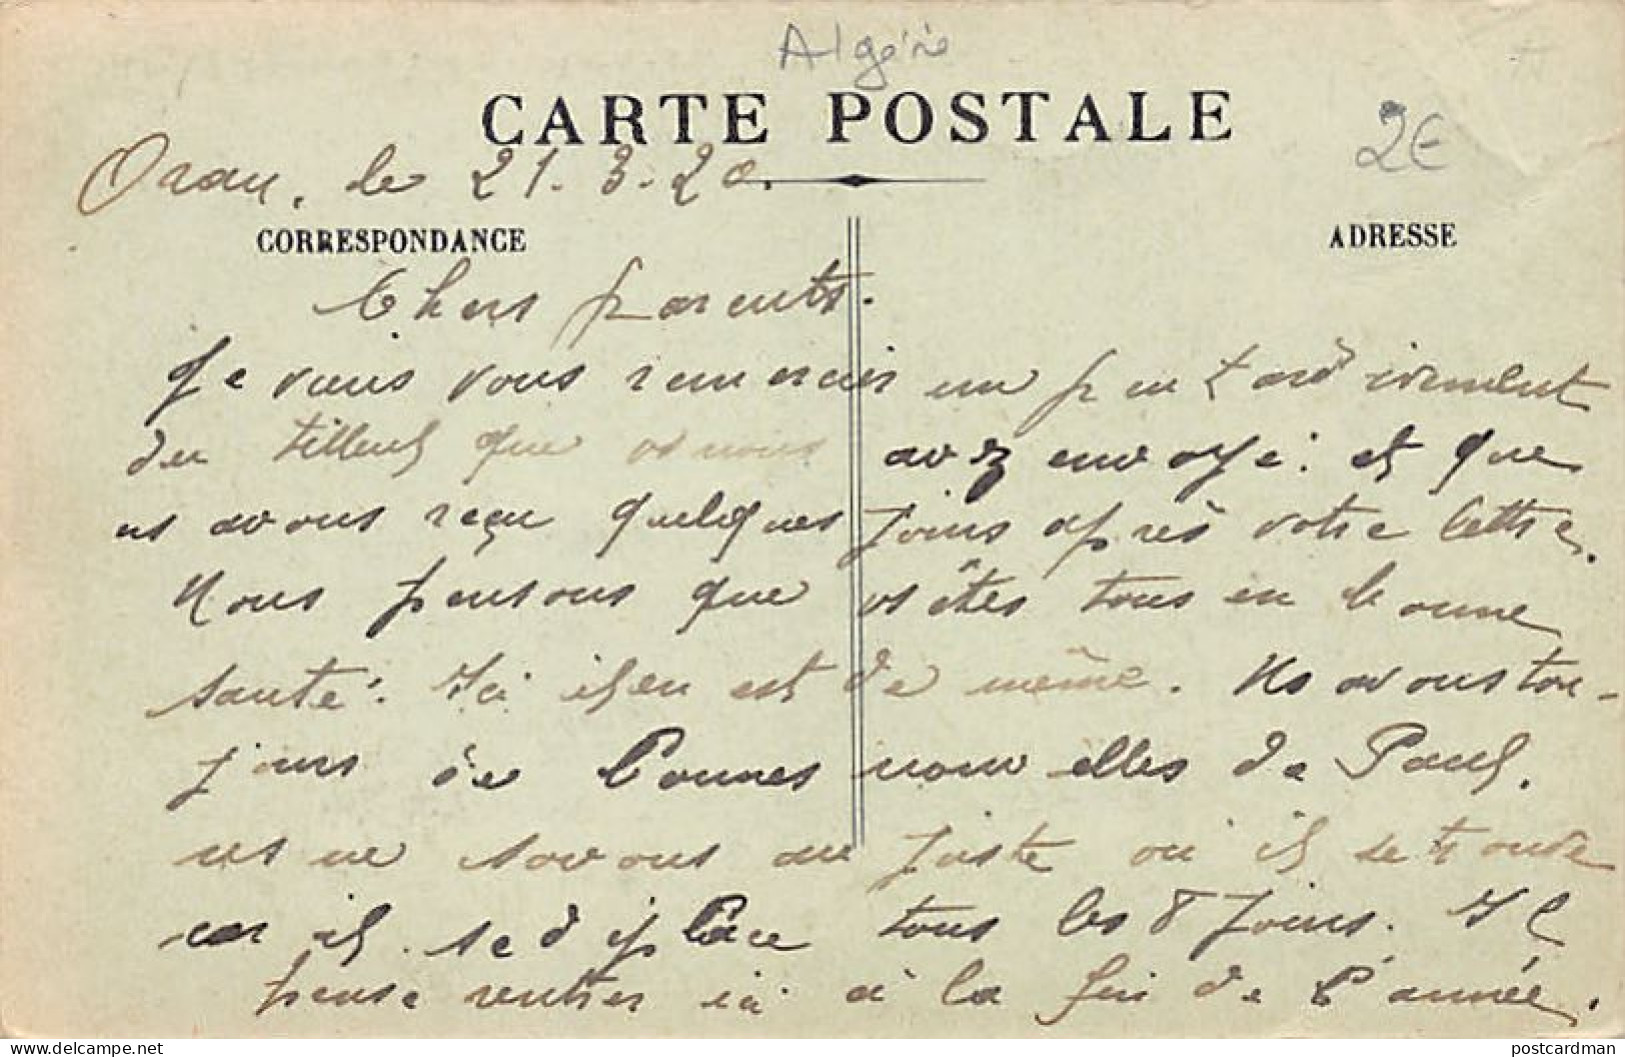 Algérie
CARTE POSTALE
2€
Oran, le 21.3.20.
CORRESPONDANCE
ADRESSE
Chers parents.
Je viens vous remercier un peu tardivement
du tilleul que vs nous avez envoyé. et que
ns avons reçu quelques jours après votre lettre.
Nous pensons que vs êtes tous en bonne
santé. Ici il en est de même. Ns avons tou-
jours de bonnes nouvelles de Paul.
ns ne savons au juste où il se trouve
car il se déplace tous les 8 jours. Il
pense rentrer ici à la fin de l'année.
delcampe.net
postcardman